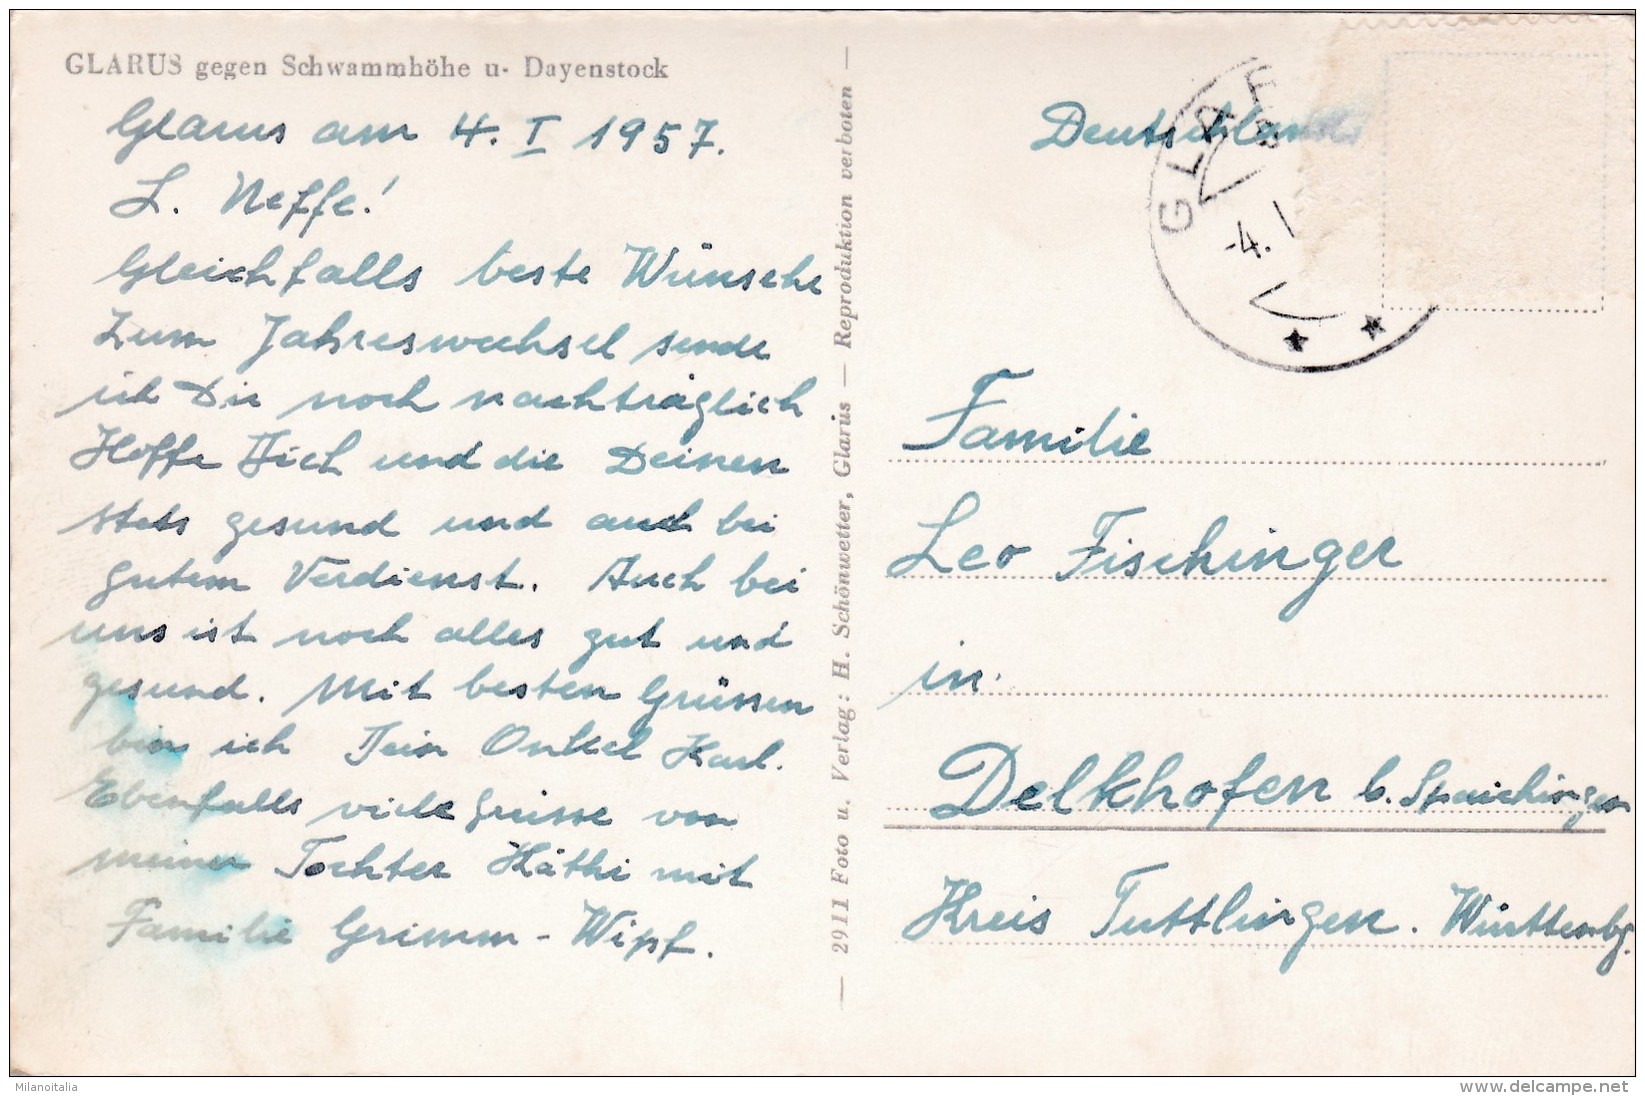 GLARUS gegen Schwammhöhe u- Dayenstock
Glarus am 4. I 1957.
L. Neffe!
Gleichfalls beste Wünsche
zum Jahreswechsel sende
ich Dir noch nachträglich
Hoffe Dich und die Deinen
stets gesund und auch bei
gutem Verdienst. Auch bei
uns ist noch alles gut und
gesund. Mit besten Grüssen
bin ich Dein Onkel Karl.
Ebenfalls viele grüsse von
meiner Tochter Käthi mit
Familie Grimm - Wipf.
— 2911 Foto u. Verlag: H. Schönwetter, Glarus — Reproduktion verboten —
Deutschland
GLAR
-4. I
Familie
Leo Fischinger
in.
Delkhofen b. Spaichingen
Kreis Tuttlingen. Württembg.
Milanoitalia
www.delcampe.net